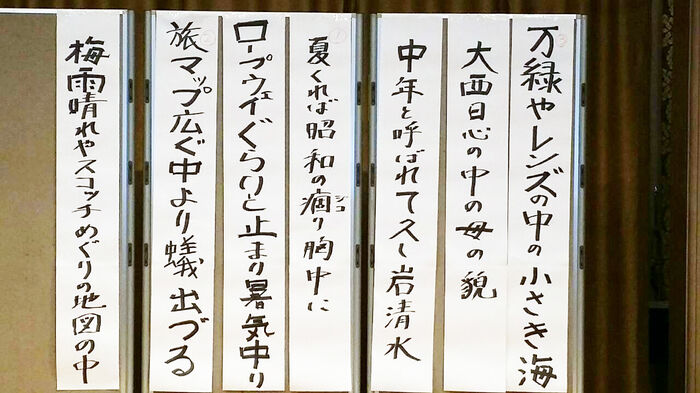 万緑やレンズの中の小さき海
大西日心の中の母の貌
中年と呼ばれて久し岩清水
夏くれば昭和の痼り胸中に
シコ
ロープウェイぐらりと止まり暑気中り
旅マップ広ぐ中より蟻出づる
梅雨晴れやスコッチめぐりの地図の中